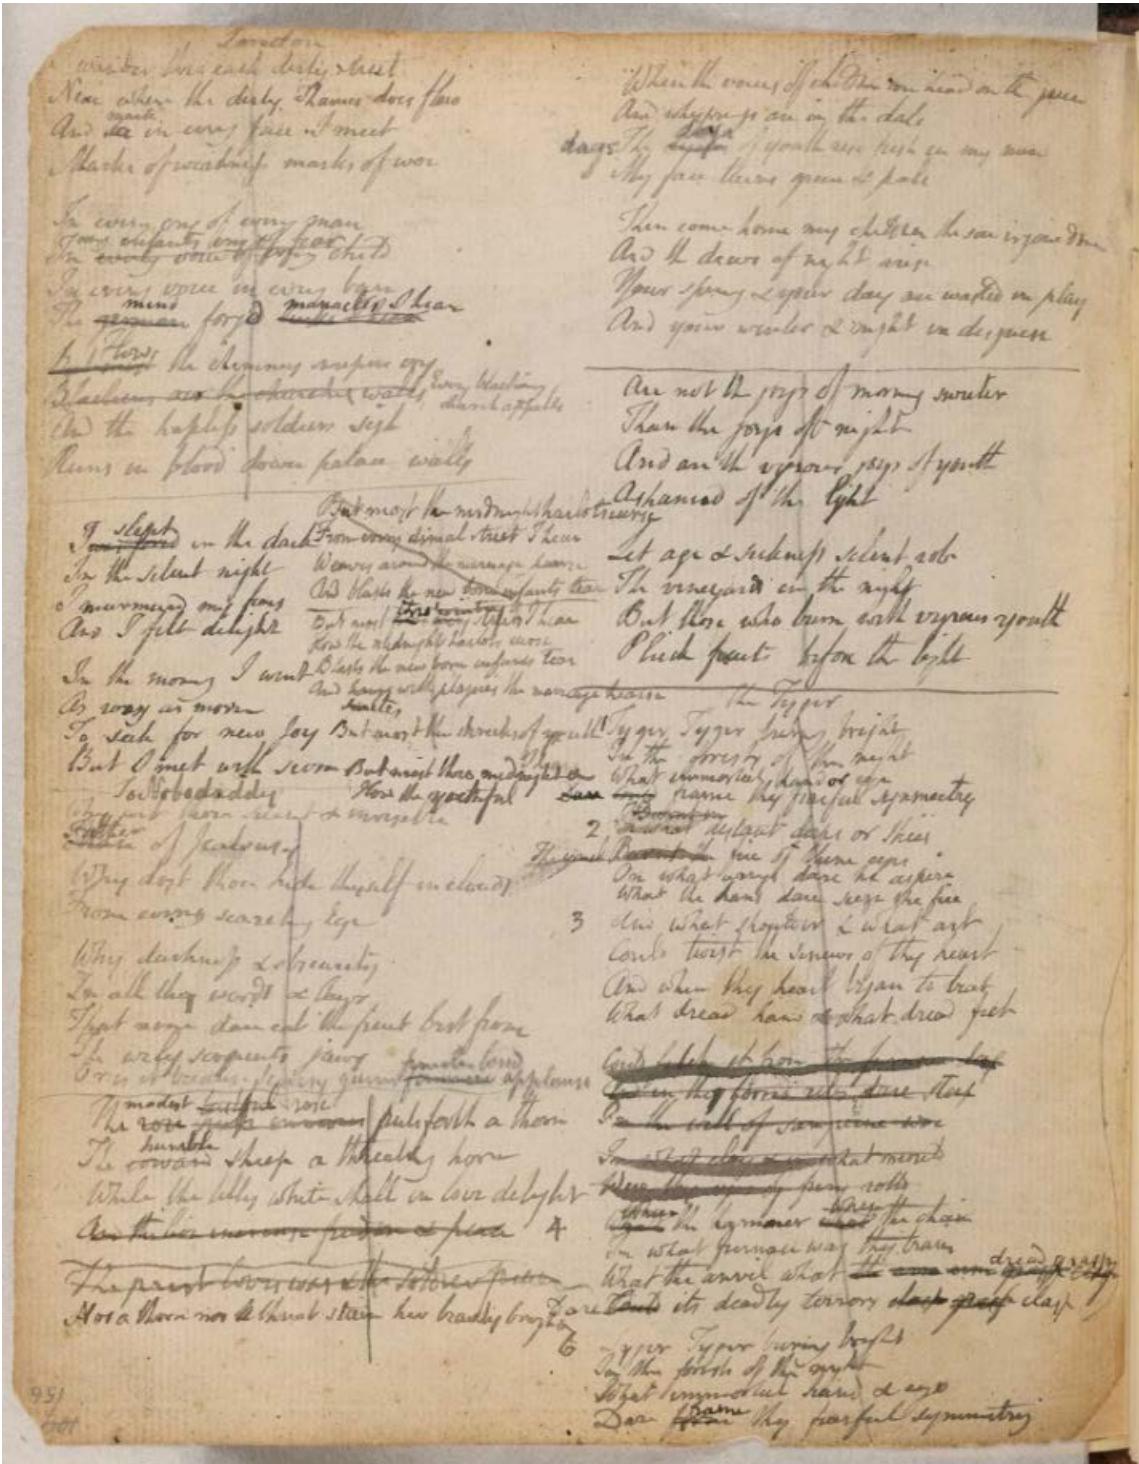 London
I wander thro each dirty street
Near where the dirty Thames does flow
mark
And see in every face I meet
Marks of weakness marks of woe
In every cry of every man
every infants cry of fear
In every voice of every child
In every voice in every ban
mind manacles I hear
The german forged links I hear
How
But most the chimney sweepers cry
Blackens oer the churches walls
Every blackning
church appalls
And the hapless soldiers sigh
Runs in blood down palace walls
But most the midnight harlots curse
From every dismal street I hear
Weaves around the marriage hearse
And blasts the new born infants tear
But most thro wintry streets I hear
How the midnight harlots curse
Blasts the new born infants tear
And hangs with plagues the marriage hearse
smites
But most the shrieks of youth I hear
But most thro midnight &
How the youthful
slept
I in the dark
In the silent night
I murmured my fears
And I felt delight
In the morning I went
As rosy as morn
To seek for new Joy
But I met with scorn
To Nobodaddy
Why art thou silent & invisible
Father of Jealousy
Why dost thou hide thyself in clouds
From every searching Eye
Why darkness & obscurity
In all thy words & laws
That none dare eat the fruit but from
The wily serpents jaws
Or is it because Secresy gains females loud applause
modest lustful rose
The rose puts envious puts forth a thorn
humble
The coward sheep a threatning horn
While the lilly white shall in love delight
And the lion increase freedom & peace
The priest loves war & the soldier peace
Nor a thorn nor a threat stain her beauty bright
When the voices of children are heard on the green
And whisprings are in the dale
days The days of youth rise fresh in my mind
My face turns green & pale
Then come home my children the sun is gone down
And the dews of night arise
Your spring & your day are wasted in play
And your winter & night in disguise
Are not the joys of morning sweeter
Than the joys of night
And are the vigrous joys of youth
Ashamed of the light
Let age & sickness silent rob
The vineyards in the night
But those who burn with vigrous youth
Pluck fruits before the light
The Tyger
1 Tyger Tyger burning bright
In the forests of the night
What immortal hand or eye
Dare Could frame thy fearful symmetry
Burnt in
2 In what distant deeps or skies
The cruel Burnt the fire of thine eyes
On what wings dare he aspire
What the hand dare sieze the fire
3 And what shoulder & what art
Could twist the sinews of thy heart
And when thy heart began to beat
What dread hand & what dread feet
Could fetch it from the furnace deep
And in thy horrid ribs dare steep
In the well of sanguine woe
In what clay & in what mould
Were thy eyes of fury rolld
Where where
4 What the hammer what the chain
In what furnace was thy brain
dread grasp
What the anvil what the arm
Dare Could its deadly terrors clasp grasp clasp
6 Tyger Tyger burning bright
In the forests of the night
What immortal hand & eye
frame
Dare form thy fearful symmetry
156